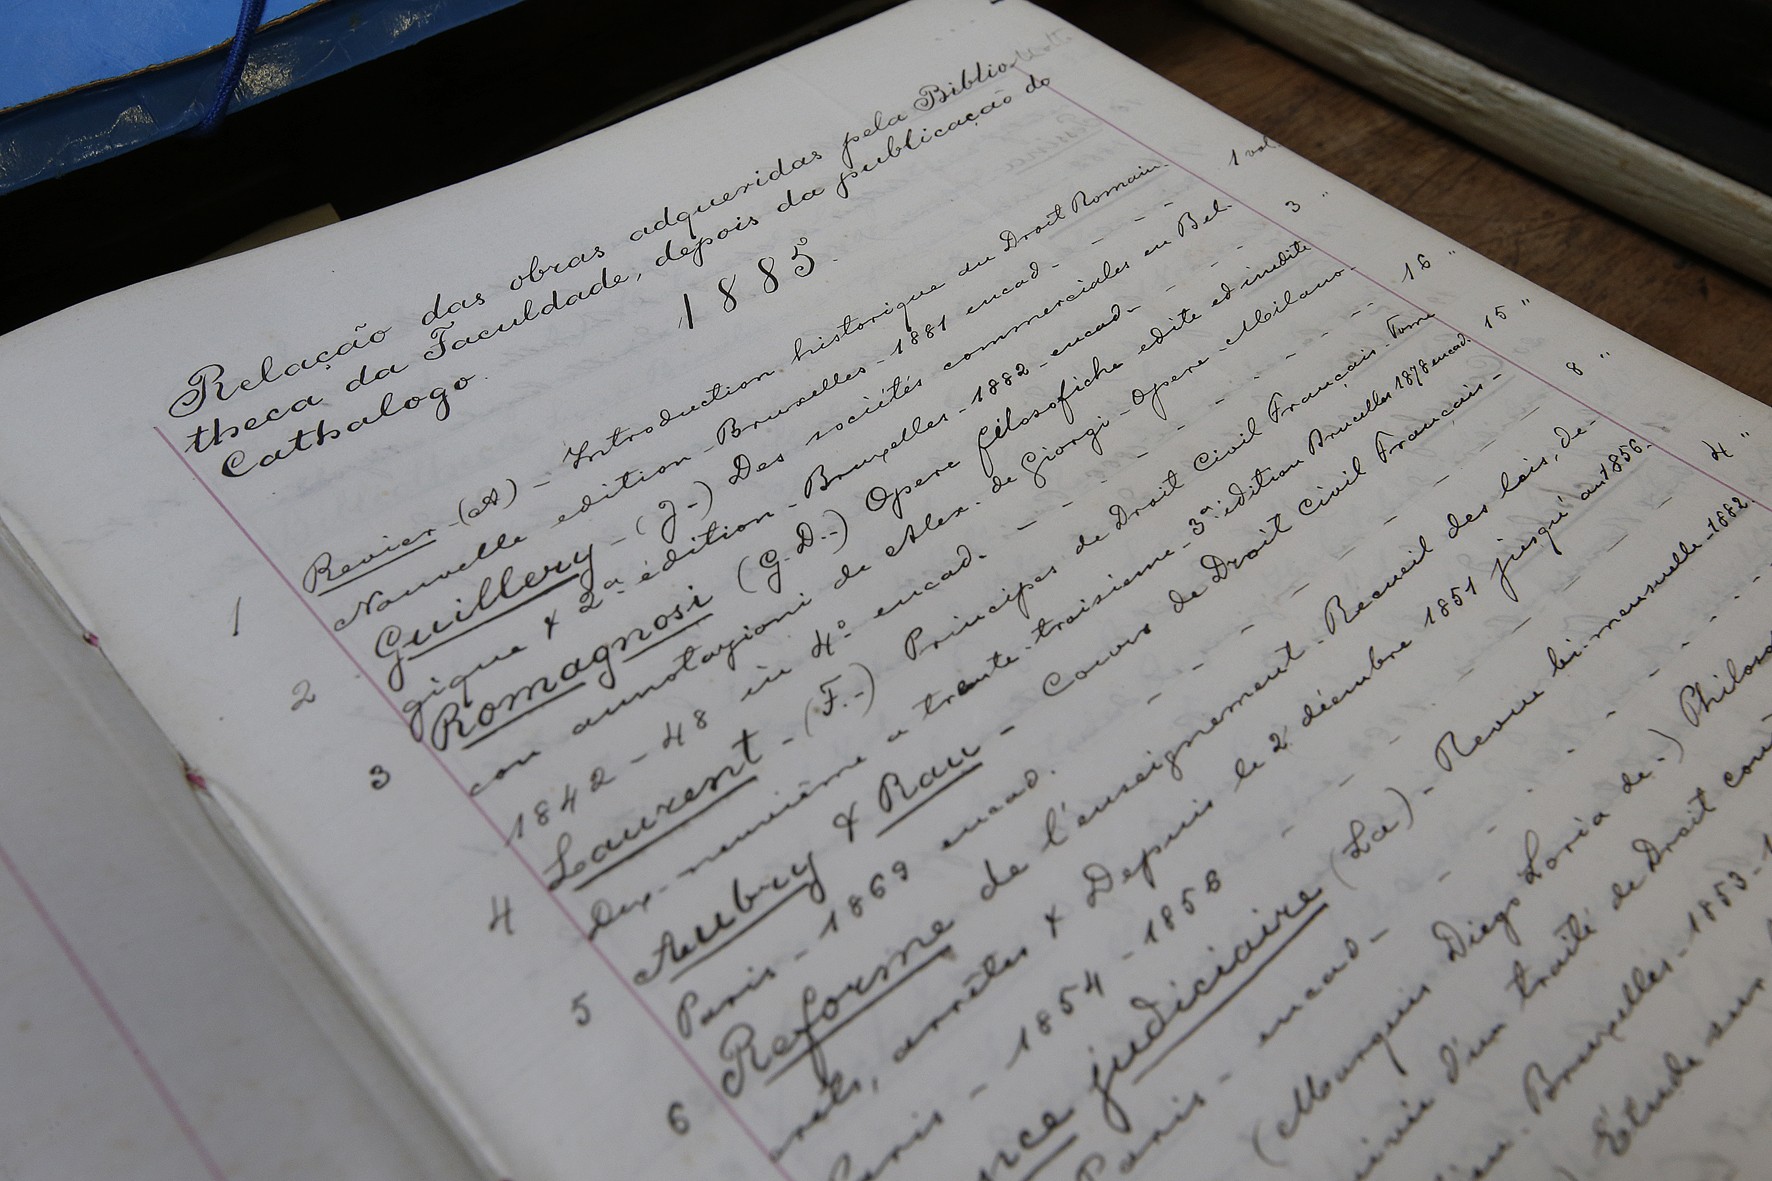 Relação das obras adqueridas pela Biblio-
theca da Faculdade, depois da publicação do
Cathalogo.
1885.
1 Revier-(A)- Introduction historique au Droit Romain. 1 vol.
Nouvelle edition-Bruxelles-1881 encad-
2 Guillery-(J-) Des sociétés commerciales en Bel- 3 "
gique & 2ª édition-Bruxelles-1882-encad-
3 Romagnosi (G.D.-) Opere filosofiche edite ed inedite
con annotazioni de Alex. de Giorgi-Opere-Milano-
1842-48 in 4º encad. 16 "
4 Laurent-(F.-) Principes de Droit Civil Français-Tome
Dix-neuvième a trente-troisième-3ª édition Bruxelles 1878 encad. 15 "
5 Aubry & Rau- Cours de Droit Civil Français-
Paris-1869 encad. 8 "
6 Reforme de l'enseignement-Recueil des lois, de-
crets, arrêtes & Depuis le 2 décembre 1851 jusqu'au 1856.
Paris-1854-1858 4 "
judiciaire (La)-Revue bi-mensuelle-1882.
Paris-encad-
(Marquis Diego Soria de-)
d'un traité de Droit
Bruxelles-1853-
Étude sur